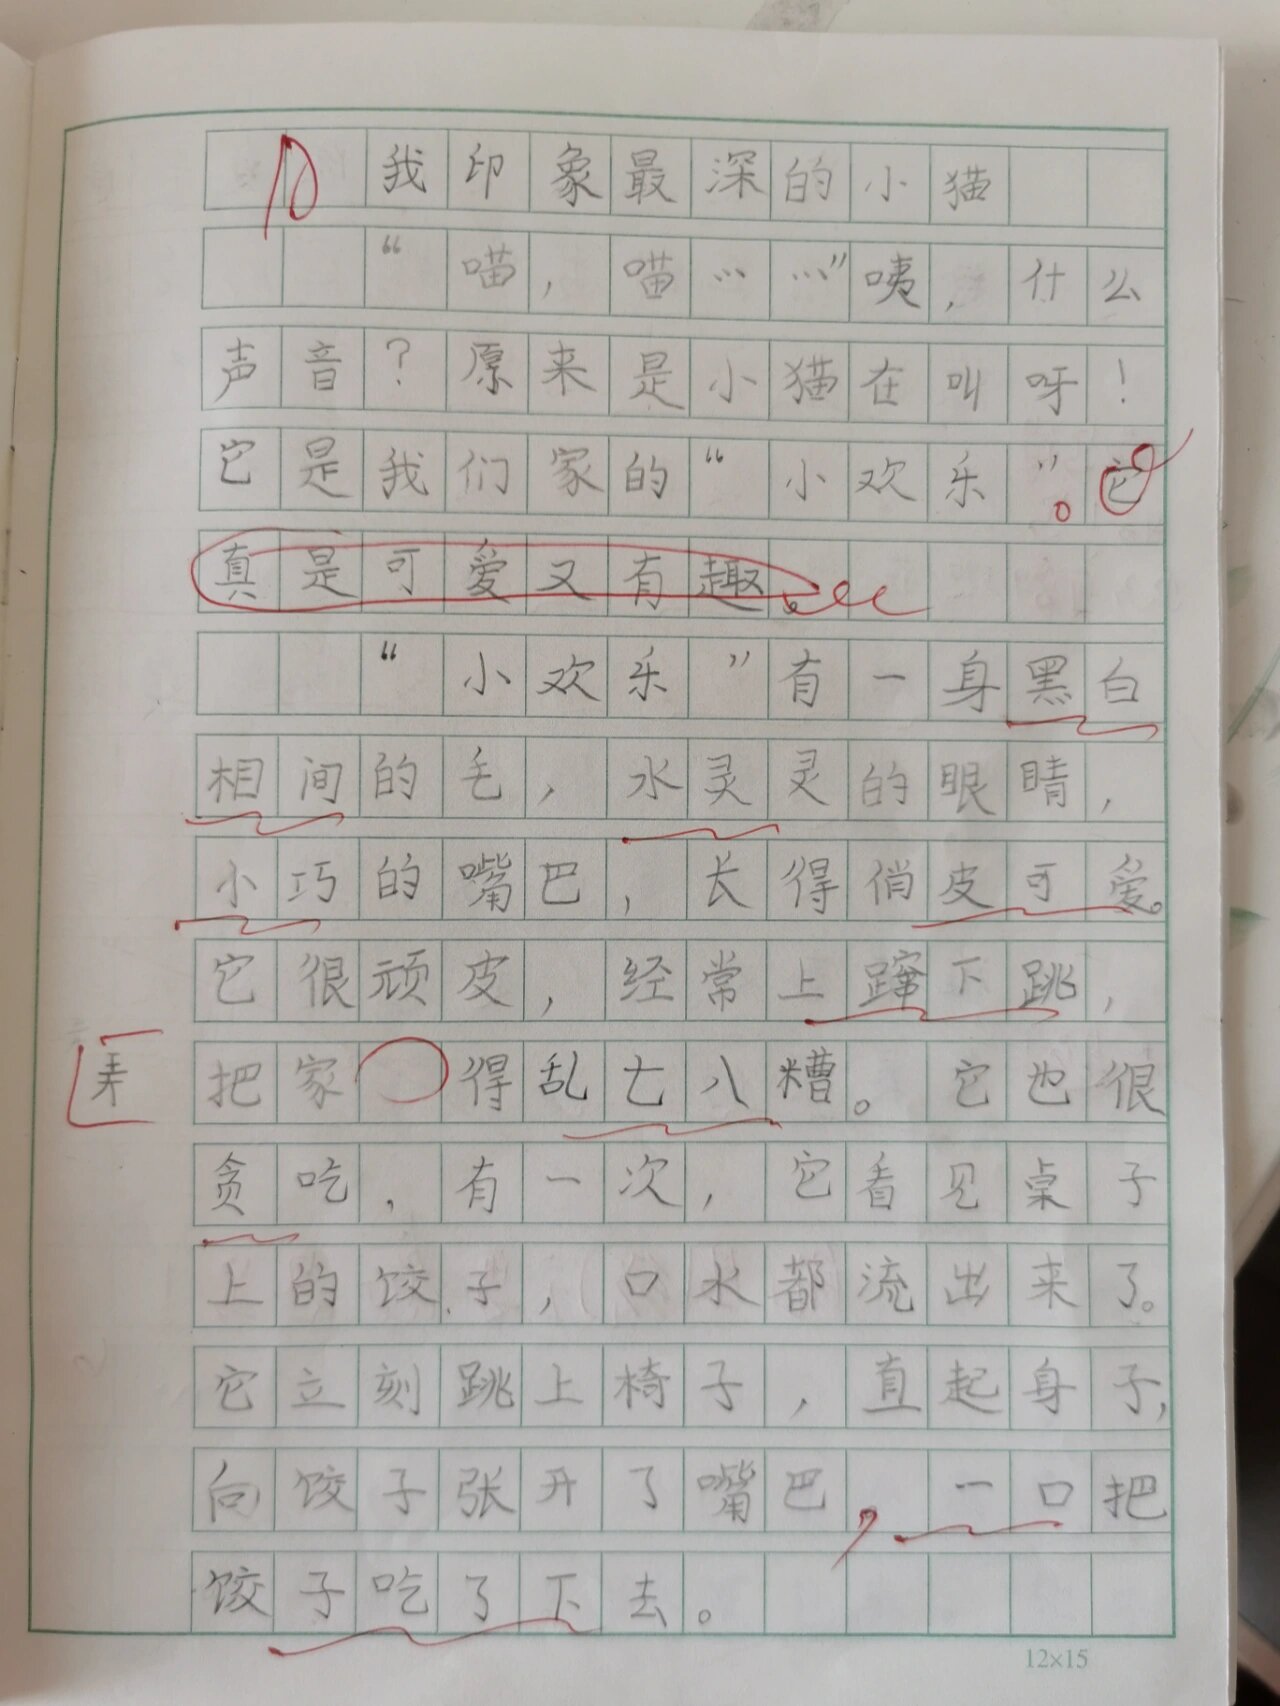 我印象最深的小猫
“喵，喵……”咦，什么
声音？原来是小猫在叫呀！
它是我们家的“小欢乐”。它
真是可爱又有趣。
“小欢乐”有一身黑白
相间的毛，水灵灵的眼睛，
小巧的嘴巴，长得俏皮可爱。
它很顽皮，经常上蹿下跳，
弄 把家 得乱七八糟。它也很
贪吃，有一次，它看见桌子
上的饺子，口水都流出来了。
它立刻跳上椅子，直起身子，
向饺子张开了嘴巴，一口把
饺子吃了下去。
12×15